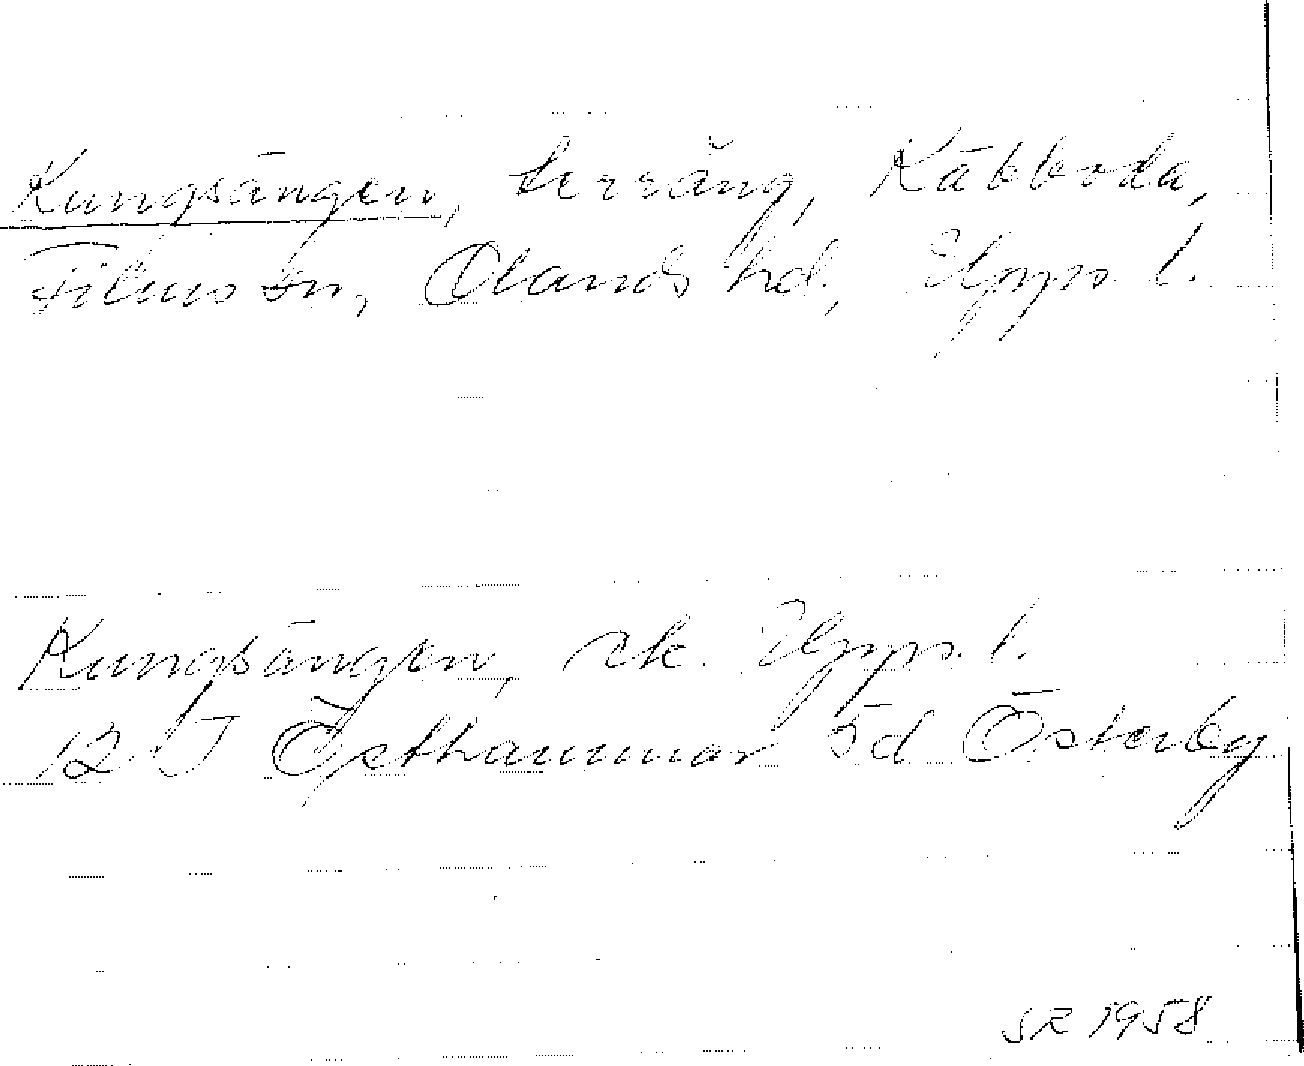 Kungsängen, terräng, Käbboda,
Films sn, Olands hd, Upps. l.
Kungsängen, ek. Upps. l.
12 I Östhammar 5d Österby
SR 1958